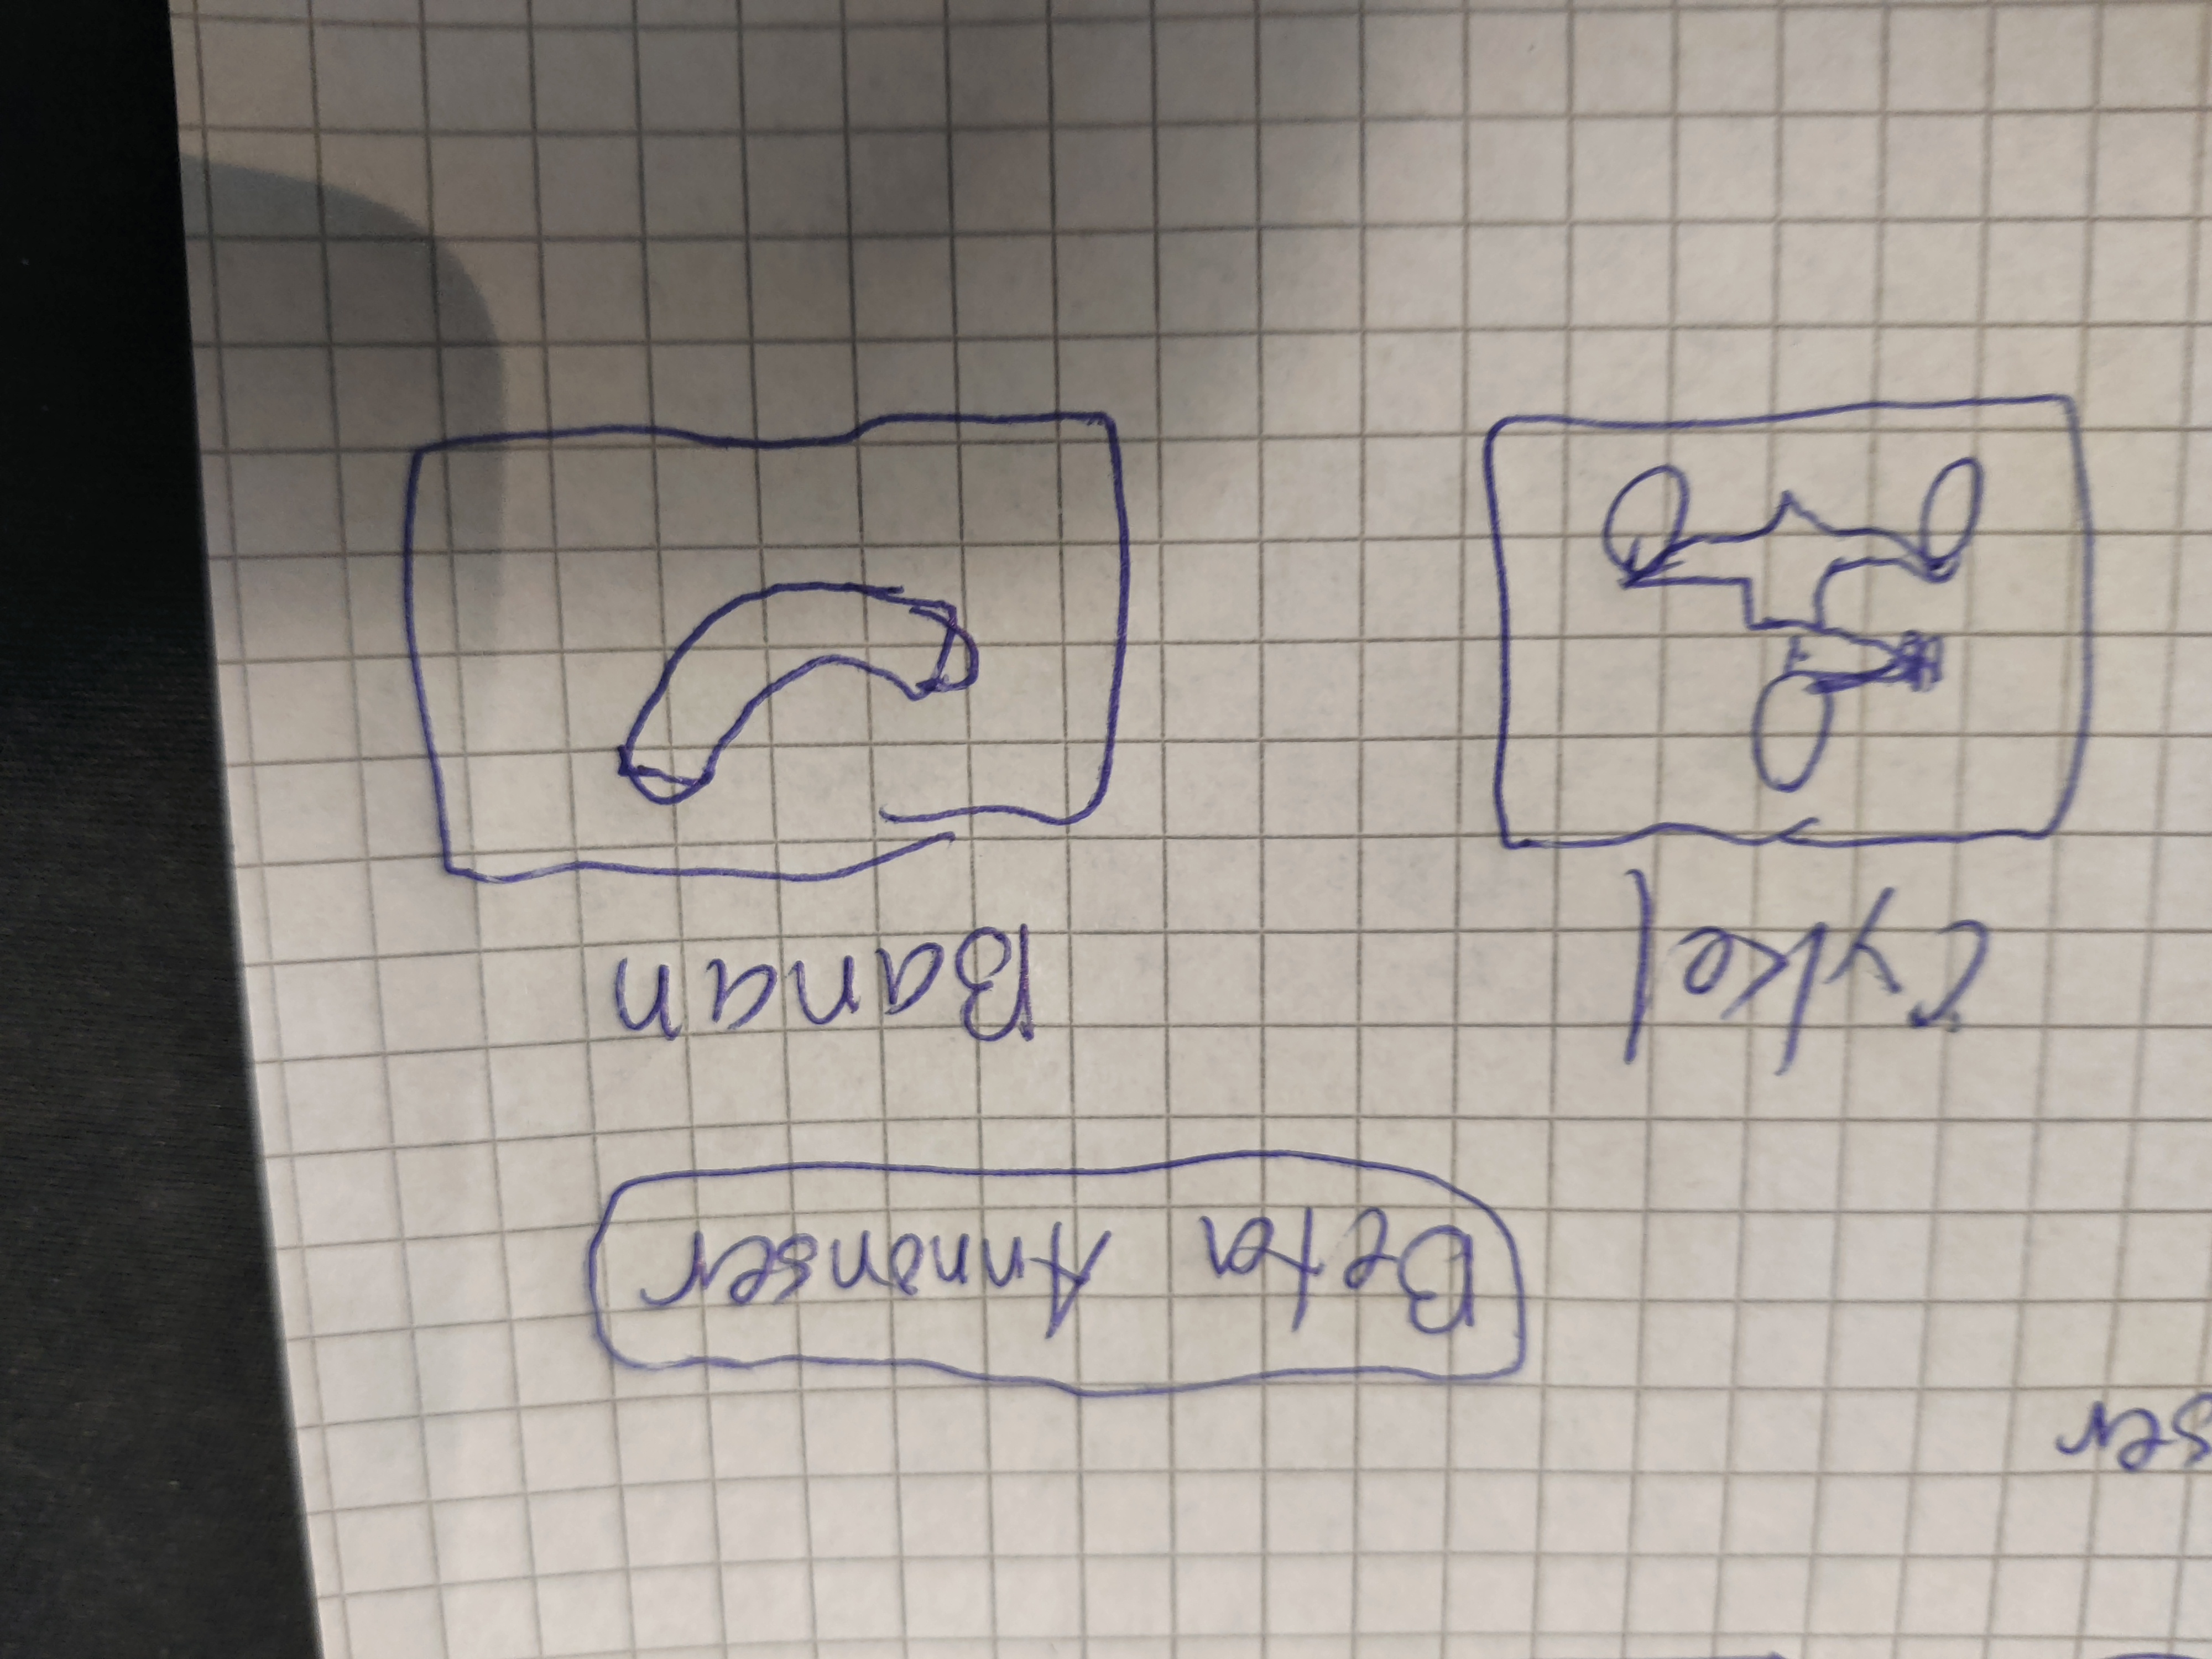 ser
Beta Annonser
Cykel
Banan